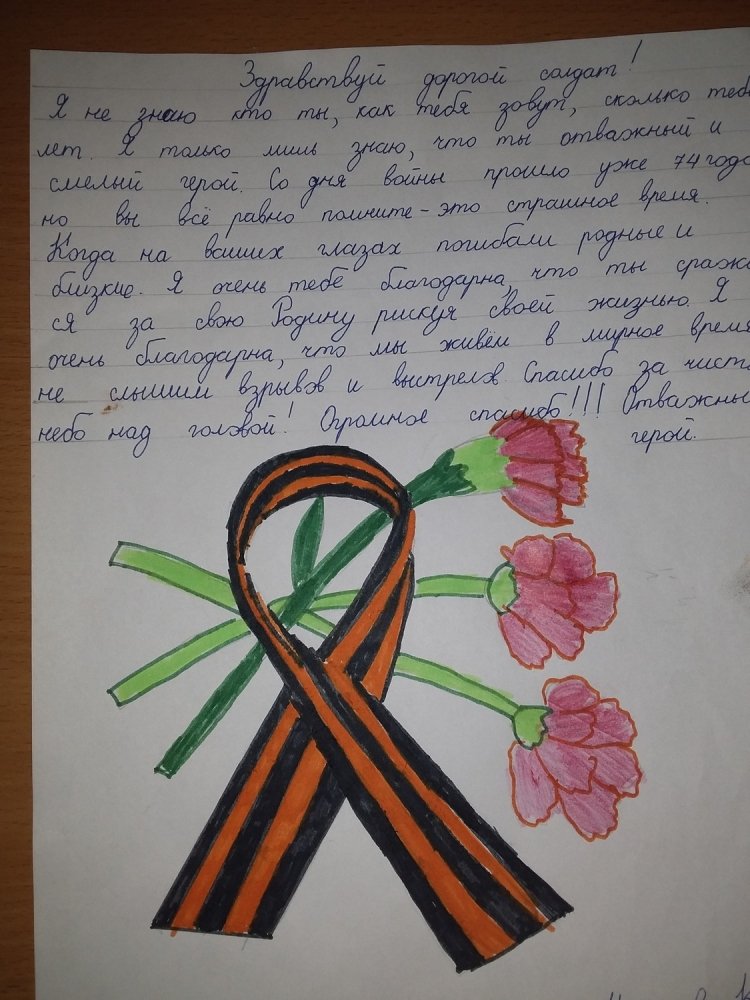 Здравствуй дорогой солдат!
Я не знаю кто ты, как тебя зовут, сколько тебе
лет. Я только лишь знаю, что ты отважный и
смелый герой. Со дня войны прошло уже 74 года
но вы всё равно помните - это страшное время.
Когда на ваших глазах погибали родные и
близкие. Я очень тебе благодарна, что ты сража
ся за свою Родину рискуя своей жизнью. Я
очень благодарна, что мы живём в мирное время
не слышим взрывов и выстрелов. Спасибо за чист
небо над головой! Огромное спасибо!!! Отважны
герой.